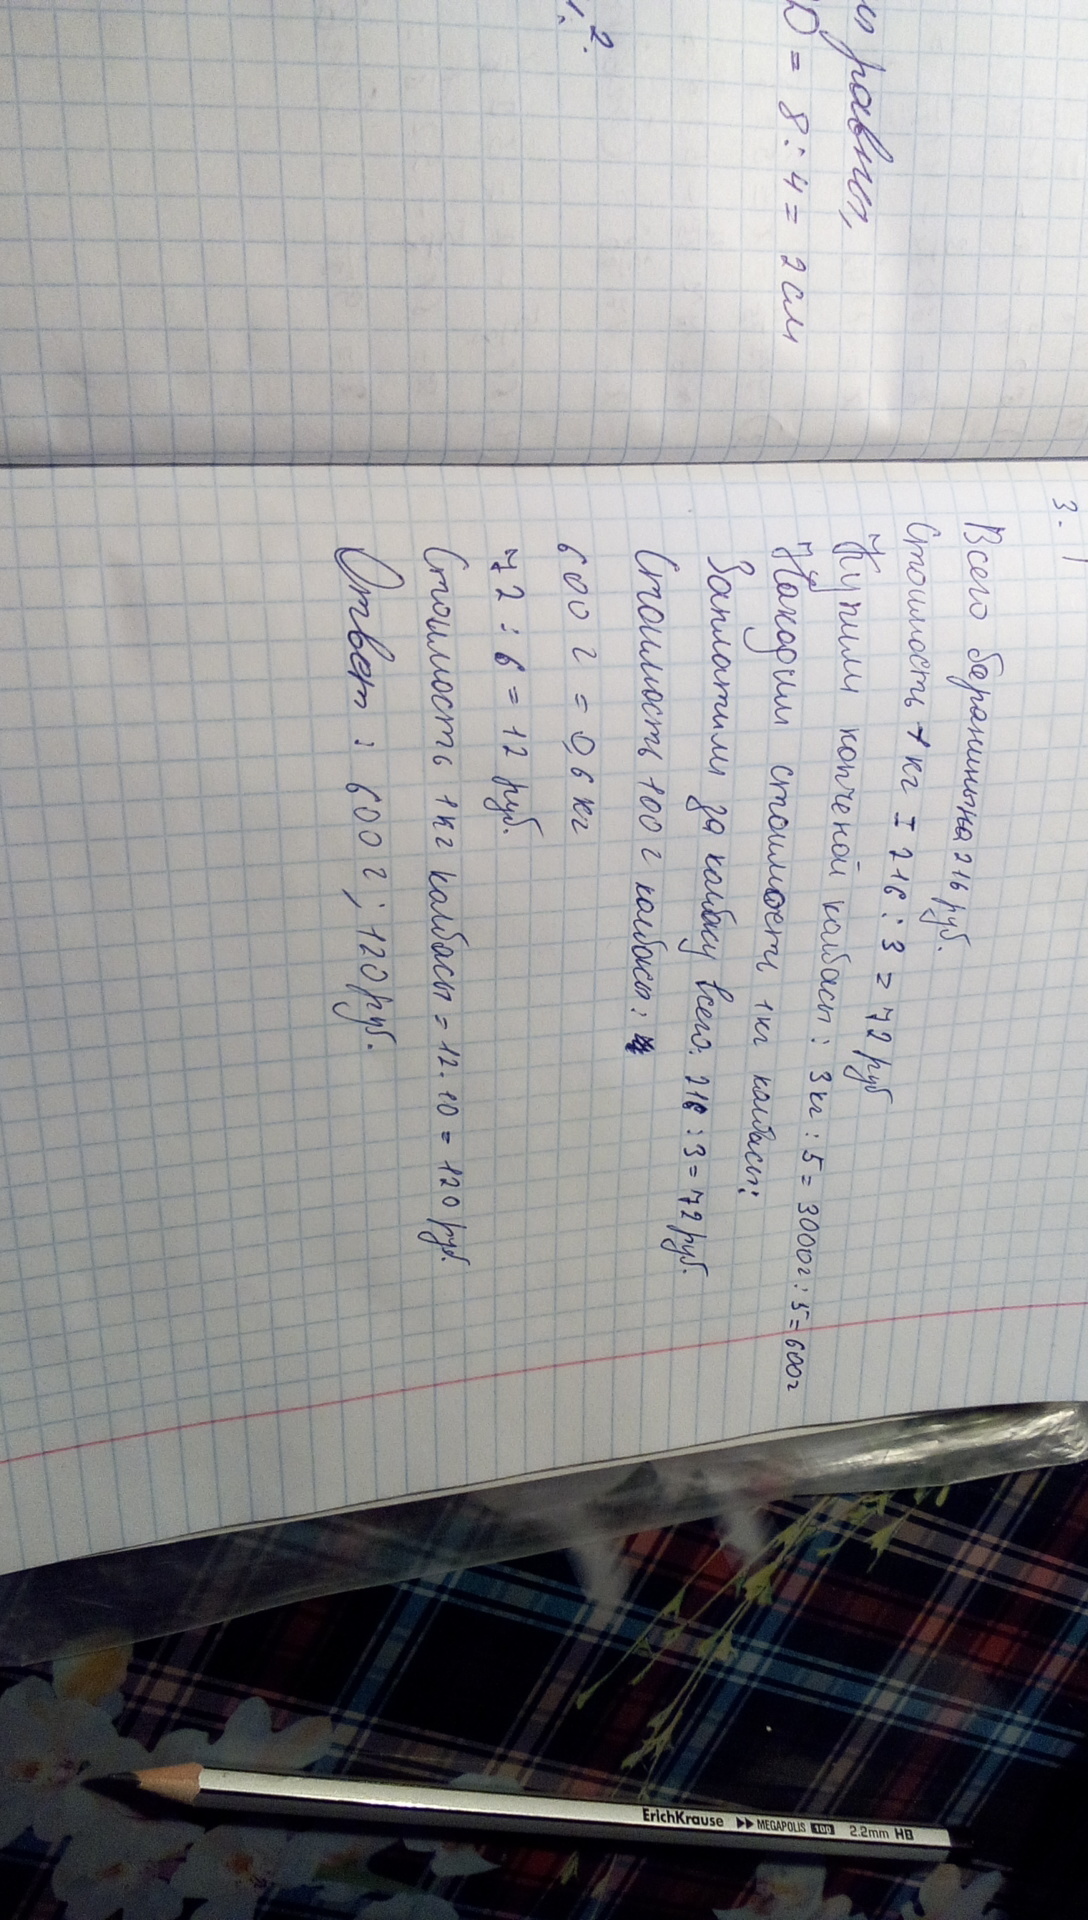 равны,
D = 8 : 4 = 2 см
2.
3.1
Всего баранины на 216 руб.
Стоимость 1 кг = 216 : 3 = 72 руб
Купили копченой колбасы : 3 кг : 5 = 3000г : 5 = 600г
Находим стоимость 1кг колбасы:
Заплатили за колбасу всего: 216 : 3 = 72 руб.
Стоимость 100 г колбасы :
600 г = 0,6 кг
72 : 6 = 12 руб.
Стоимость 1кг колбасы = 12 . 10 = 120 руб.
Ответ : 600 г ; 120 руб.
ErichKrause MEGAPOLIS 100 2.2mm HB